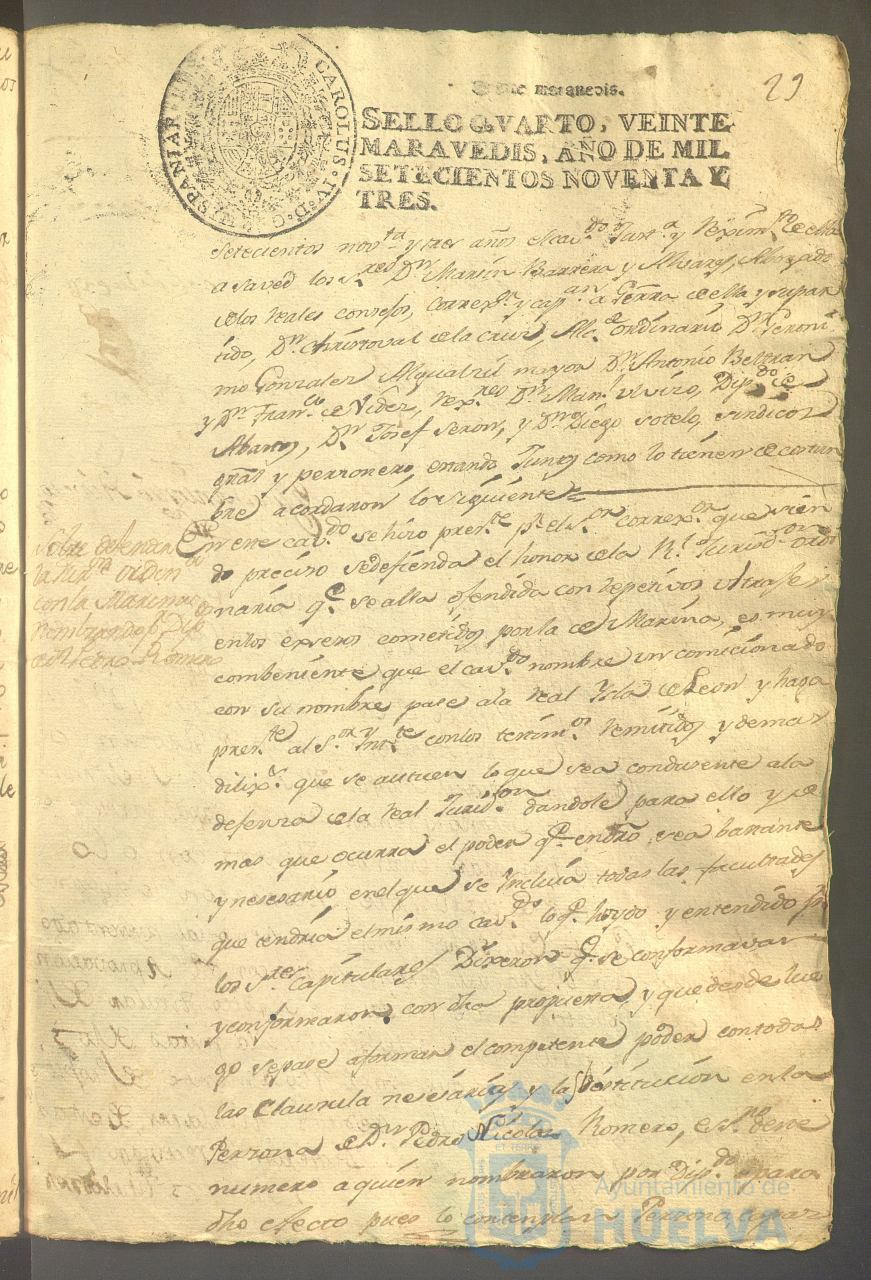 29
HISPANIAR CAROLUS · IV · D · G
Veinte maravedis.
SELLO QVARTO, VEINTE
MARAVEDIS, AÑO DE MIL
SETECIENTOS NOVENTA Y
TRES.
setecientos nov.ta y tres años el cav.do Just.a y Reximto de ella
a saved los S.res D.n Martin Barrera y Alvares, Abogado
de los reales consejos, correx.r y cap.an a Gerra de ella y su par
tido, D.n Christoval de la Cruz, Alc.e ordinario D.n Geroni
mo Gonzales Alguasil mayor D.n Antonio Beltran
y D.n Fran.co de Nides, rex.res D.n Man.l Dip.do de
Abastos, D.n Josef Seron, y D.n Diego Sotelo, sindicos
gral y perzonero, estando Juntos como lo tienen de costum
bre acordaron lo siguiente
En este cav.do se hizo pres.te p.r el S.or correx.or que sien
do preciso se defienda el honor de la R.l Jurisd.on ordi
naria q.e se alla ofendida con repetivos ultrajes
en los exsesos cometidos por la de Marina, es muy
combeniente que el cav.do nombre un comicionado
con su nombre pase a la real Ysla de Leon y haga
pres.te al S.or Ynt.te con los testim.os remitidos y demas
dilix.s que se actuen lo que sea condusente a la
defenza de la real Jurisd.on dandole para ello y de
mas que ocurra el poder q.e en dro sea bastante
y nesesario en el que se incluia todas las facultades
que tendria el mismo cav.do lo q.e hoydo y entendido p.r
los S.res Capitulares Dixeron q.e se conformavan
y conformaron con dha propuesta y que desde lue
go se pase a formar el competente poder con todas
las Clausulas nesesarias y la Sostitucion en la
Perzona de D.n Pedro Nicolas Romero, es.no de este
numero a quien nombraron por Dip.do para
dho efecto pues lo contemplan Perzona apar
Sobre defender
la R.l Ordin.a
con la Marina
nombrandose p.r Dip.do
a D.n Pedro Romero
Ayuntamiento de
HUELVA